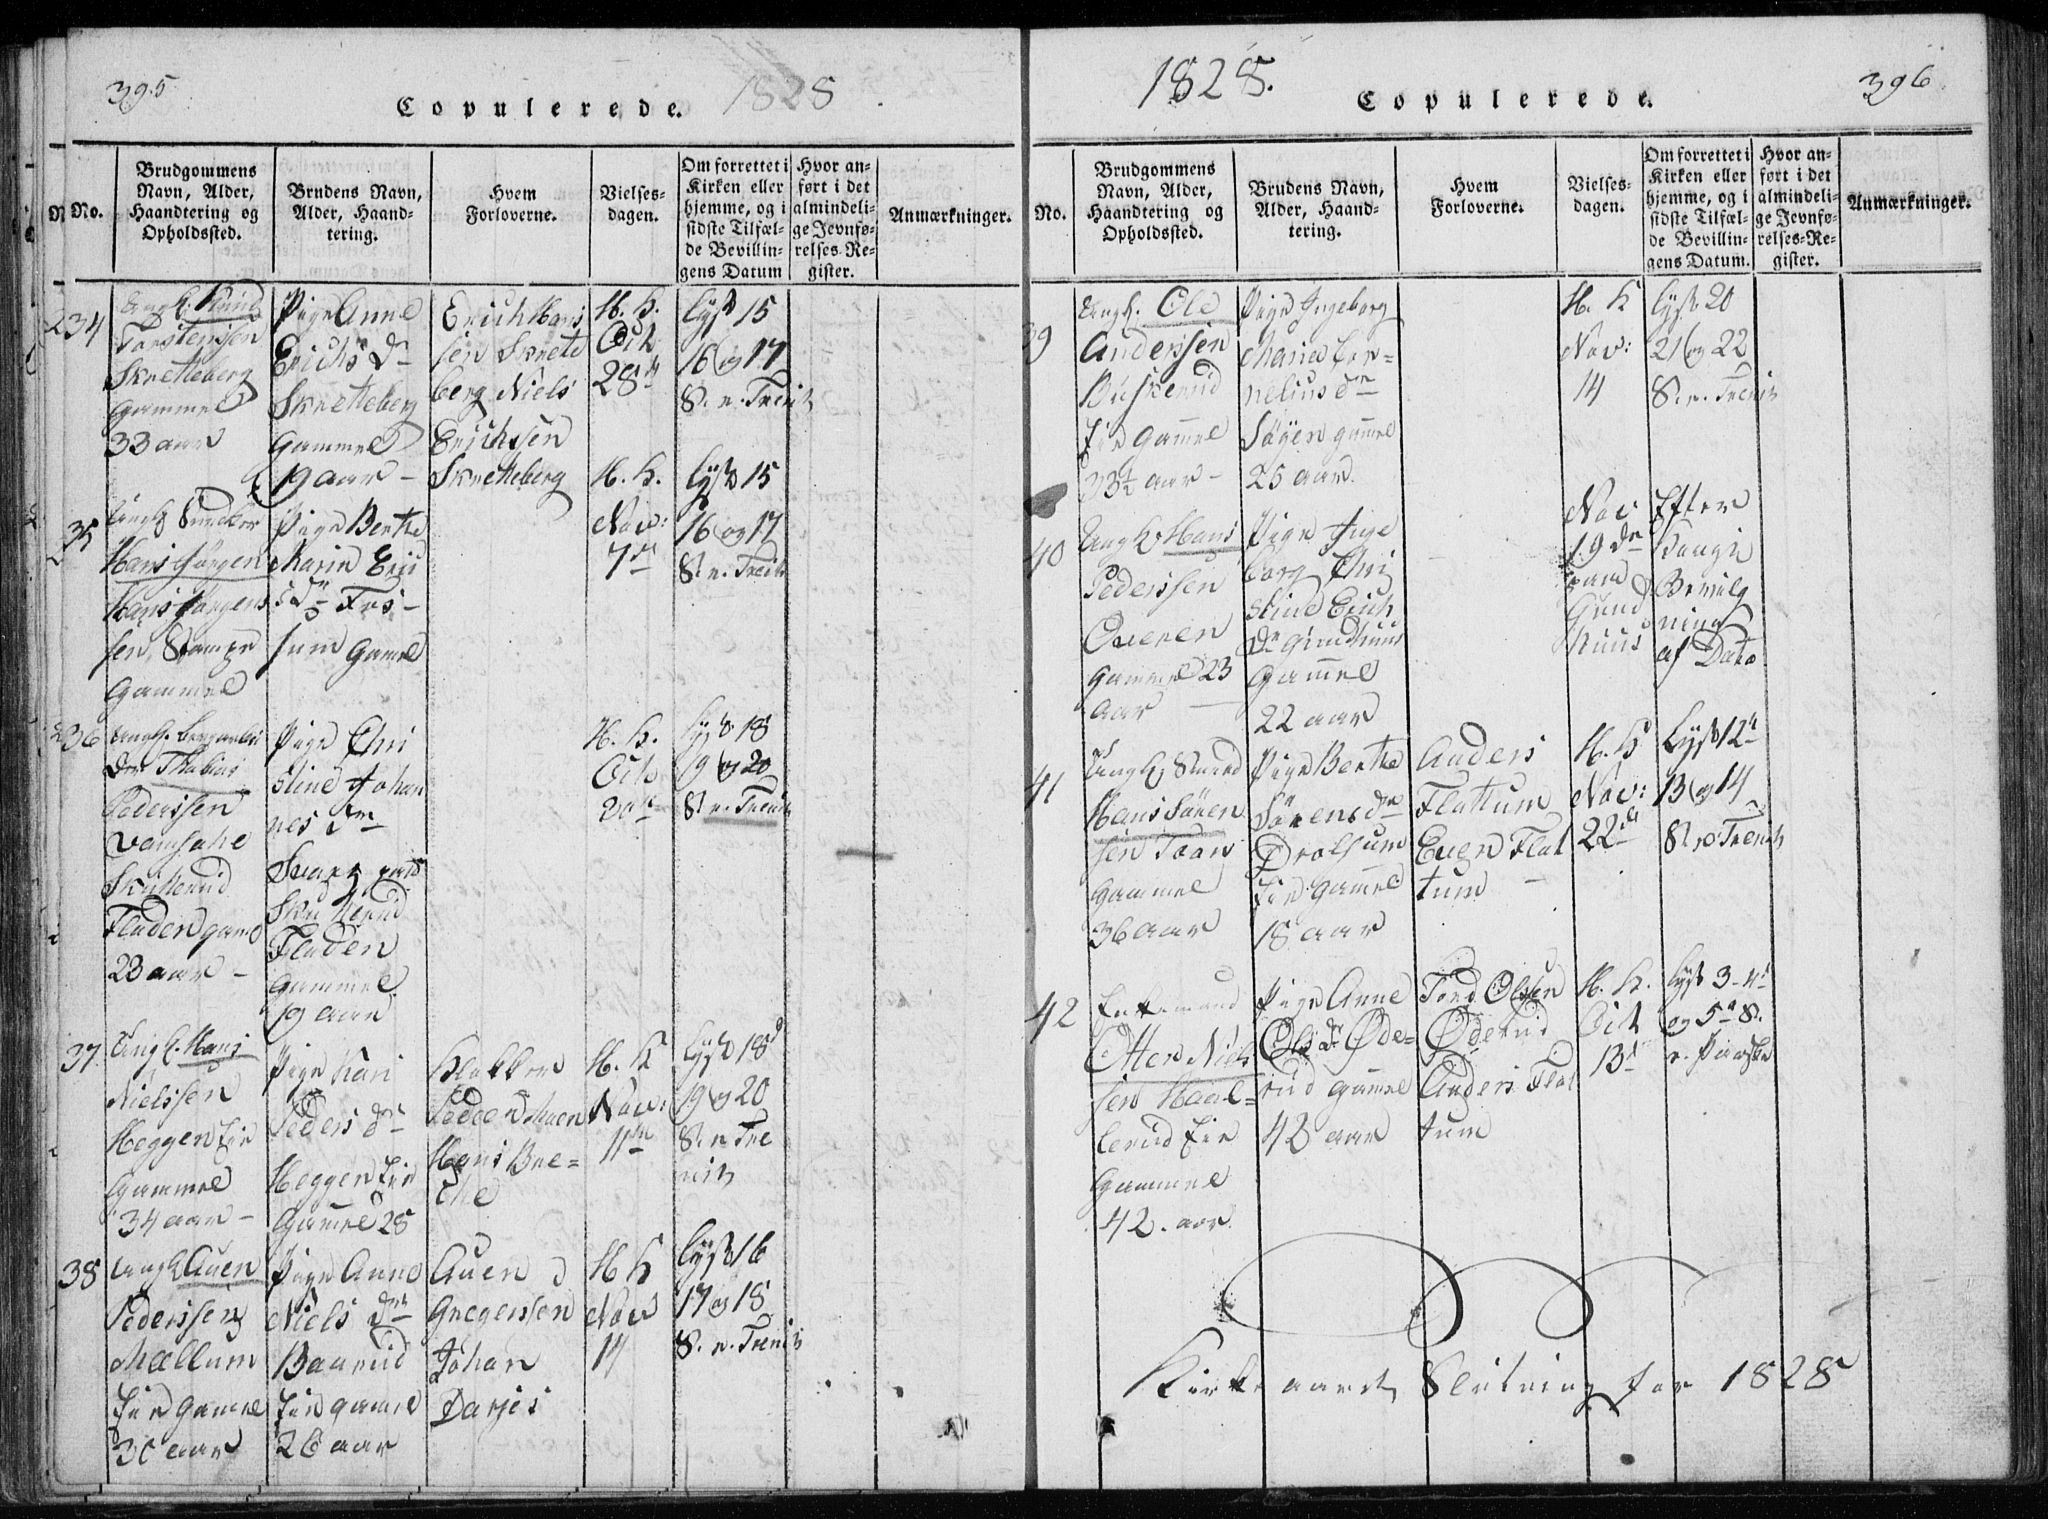 395
Copulerede. 1828
No.
Brudgommens
Navn, Alder,
Haandtering og
Opholdssted.
Brudens Navn,
Alder, Haand-
tering.
Hvem
Forloverne.
Vielses-
dagen.
Om forrettet i
Kirken eller
hjemme, og i
sidste Tilfæl-
de Bevillin-
gens Datum
Hvor an-
ført i det
almindeli-
ge Jevnfø-
relses-Re-
gister.
Anmærkninger.
34
Ungk.
Torstenssen
Skretteberg
gammel
33 aar
Pige Anne
Erichs Dr
Skretteberg
Gammel
19 aar -
Erich Hans
sen Skrette
berg Niels
Erichssen
Skretteberg
H. K.
Oct
28de
lyst 15
16 og 17
S. e. Trinit
35
Ungk
Hans Jörgen
Hans Jörgens
sen Stampe
gammel
Pige Berthe
Marie Eric
s Dr Fos-
sum Gamel
H. K.
Nov:
7de
lyst 15
16 og 17
S. e. Trinit
36
Ungk.
Pederssen
Skutterud
Floden gaml
23 aar -
Pige Chri
stine Johan
nes Dr
Svart
Skutterud
Floden
Gammel
19 aar
H. K.
Oct
lyst 18
19 og 20
S. e. Trinit
37
Ungk. Hans
Nielssen
Heggen Eie
Gammel
34 aar -
Pige Kari
Peders Dr
Heggen Eie
Gamel 28
Klokker
Peder Moen
Hans Bre=
che
H. K
Nov:
11te
lyst 18
19 og 20
S. e Tri
nit
38
Ungk Auen
Pederssen
Mællum
Eie Gamel
30 aar
Pige Anne
Niels Dr
Baarud
Eie gamel
26 aar
Auen
Gregerssen
Johan
Darjes
H K
Nov
14
lyst 16
17 og 18
S. e. Trinit
1828.
Copulerede.
396
No.
Brudgommens
Navn, Alder,
Haandtering og
Opholdssted.
Brudens Navn,
Alder, Haand-
tering.
Hvem
Forloverne.
Vielses-
dagen.
Om forrettet i
Kirken eller
hjemme, og i
sidste Tilfæl-
de Bevillin-
gens Datum.
Hvor an-
ført i det
almindeli-
ge Jevnfø-
relses-Re-
gister.
Anmærkninger.
39
Ungk. Ole
Anderssen
Buskerud
Eie gamel
33½ aar -
Pige Ingeborg
Maria Cor=
nelius Dr
Söyen gamel
25 aar
H. K
Nov:
14
lyst 20
21 og 22
S. e. Trinit
40
Ungk. Hans
Pederssen
Overen
gammel 23
aar
Pige Inge
borg Chri
stine Erich
Dr Gundhuus
Gammel
22 aar
Nov
19de
paa
Gund
huus
Efter
Kongl
Bevilg
ning
af Dato
41
Ungk
Hans Sören
sen Toon
gammel
36 aar
Pige Berthe
Sörens Dr
Drolsum
Eie Gamel
18 aar
Anders
Flattum
Even Flat
tum -
H. K
Nov:
22de
lyst 12te
13 og 14
S. e. Trinit
42
Enkemand
Otter Niels
sen Haal=
lerud Eie
Gammel
42. aar
Pige Anne
Ols Dr Øde=
rud gamel
42 aar
Tord Olssen
Øderud
Anders Flat
tum
H. K.
Oct
13de
lyst 3-4de
og 5te S.
e. Paaske
Kirkeaarets Slutning for 1828